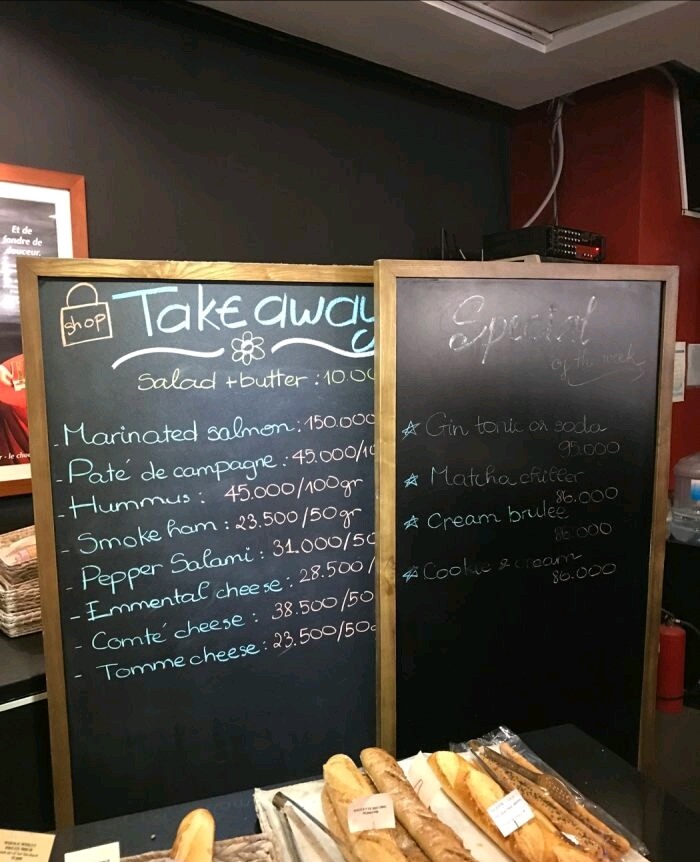 Et de
tendre de
douceur.
shop
Takeaway
Salad + butter : 10.00
- Marinated salmon : 150.000
- Paté de campagne : 45.000/10
- Hummus : 45.000/100gr
- Smoke ham : 23.500/50gr
- Pepper Salami : 31.000/50
- Emmental cheese : 28.500/
- Comté cheese : 38.500/50
- Tomme cheese : 23.500/50g
Special
of the week
☆ Gin tonic or soda
95.000
☆ Matcha chiller
86.000
☆ Cream brulee
86.000
☆ Cookie & cream
86.000